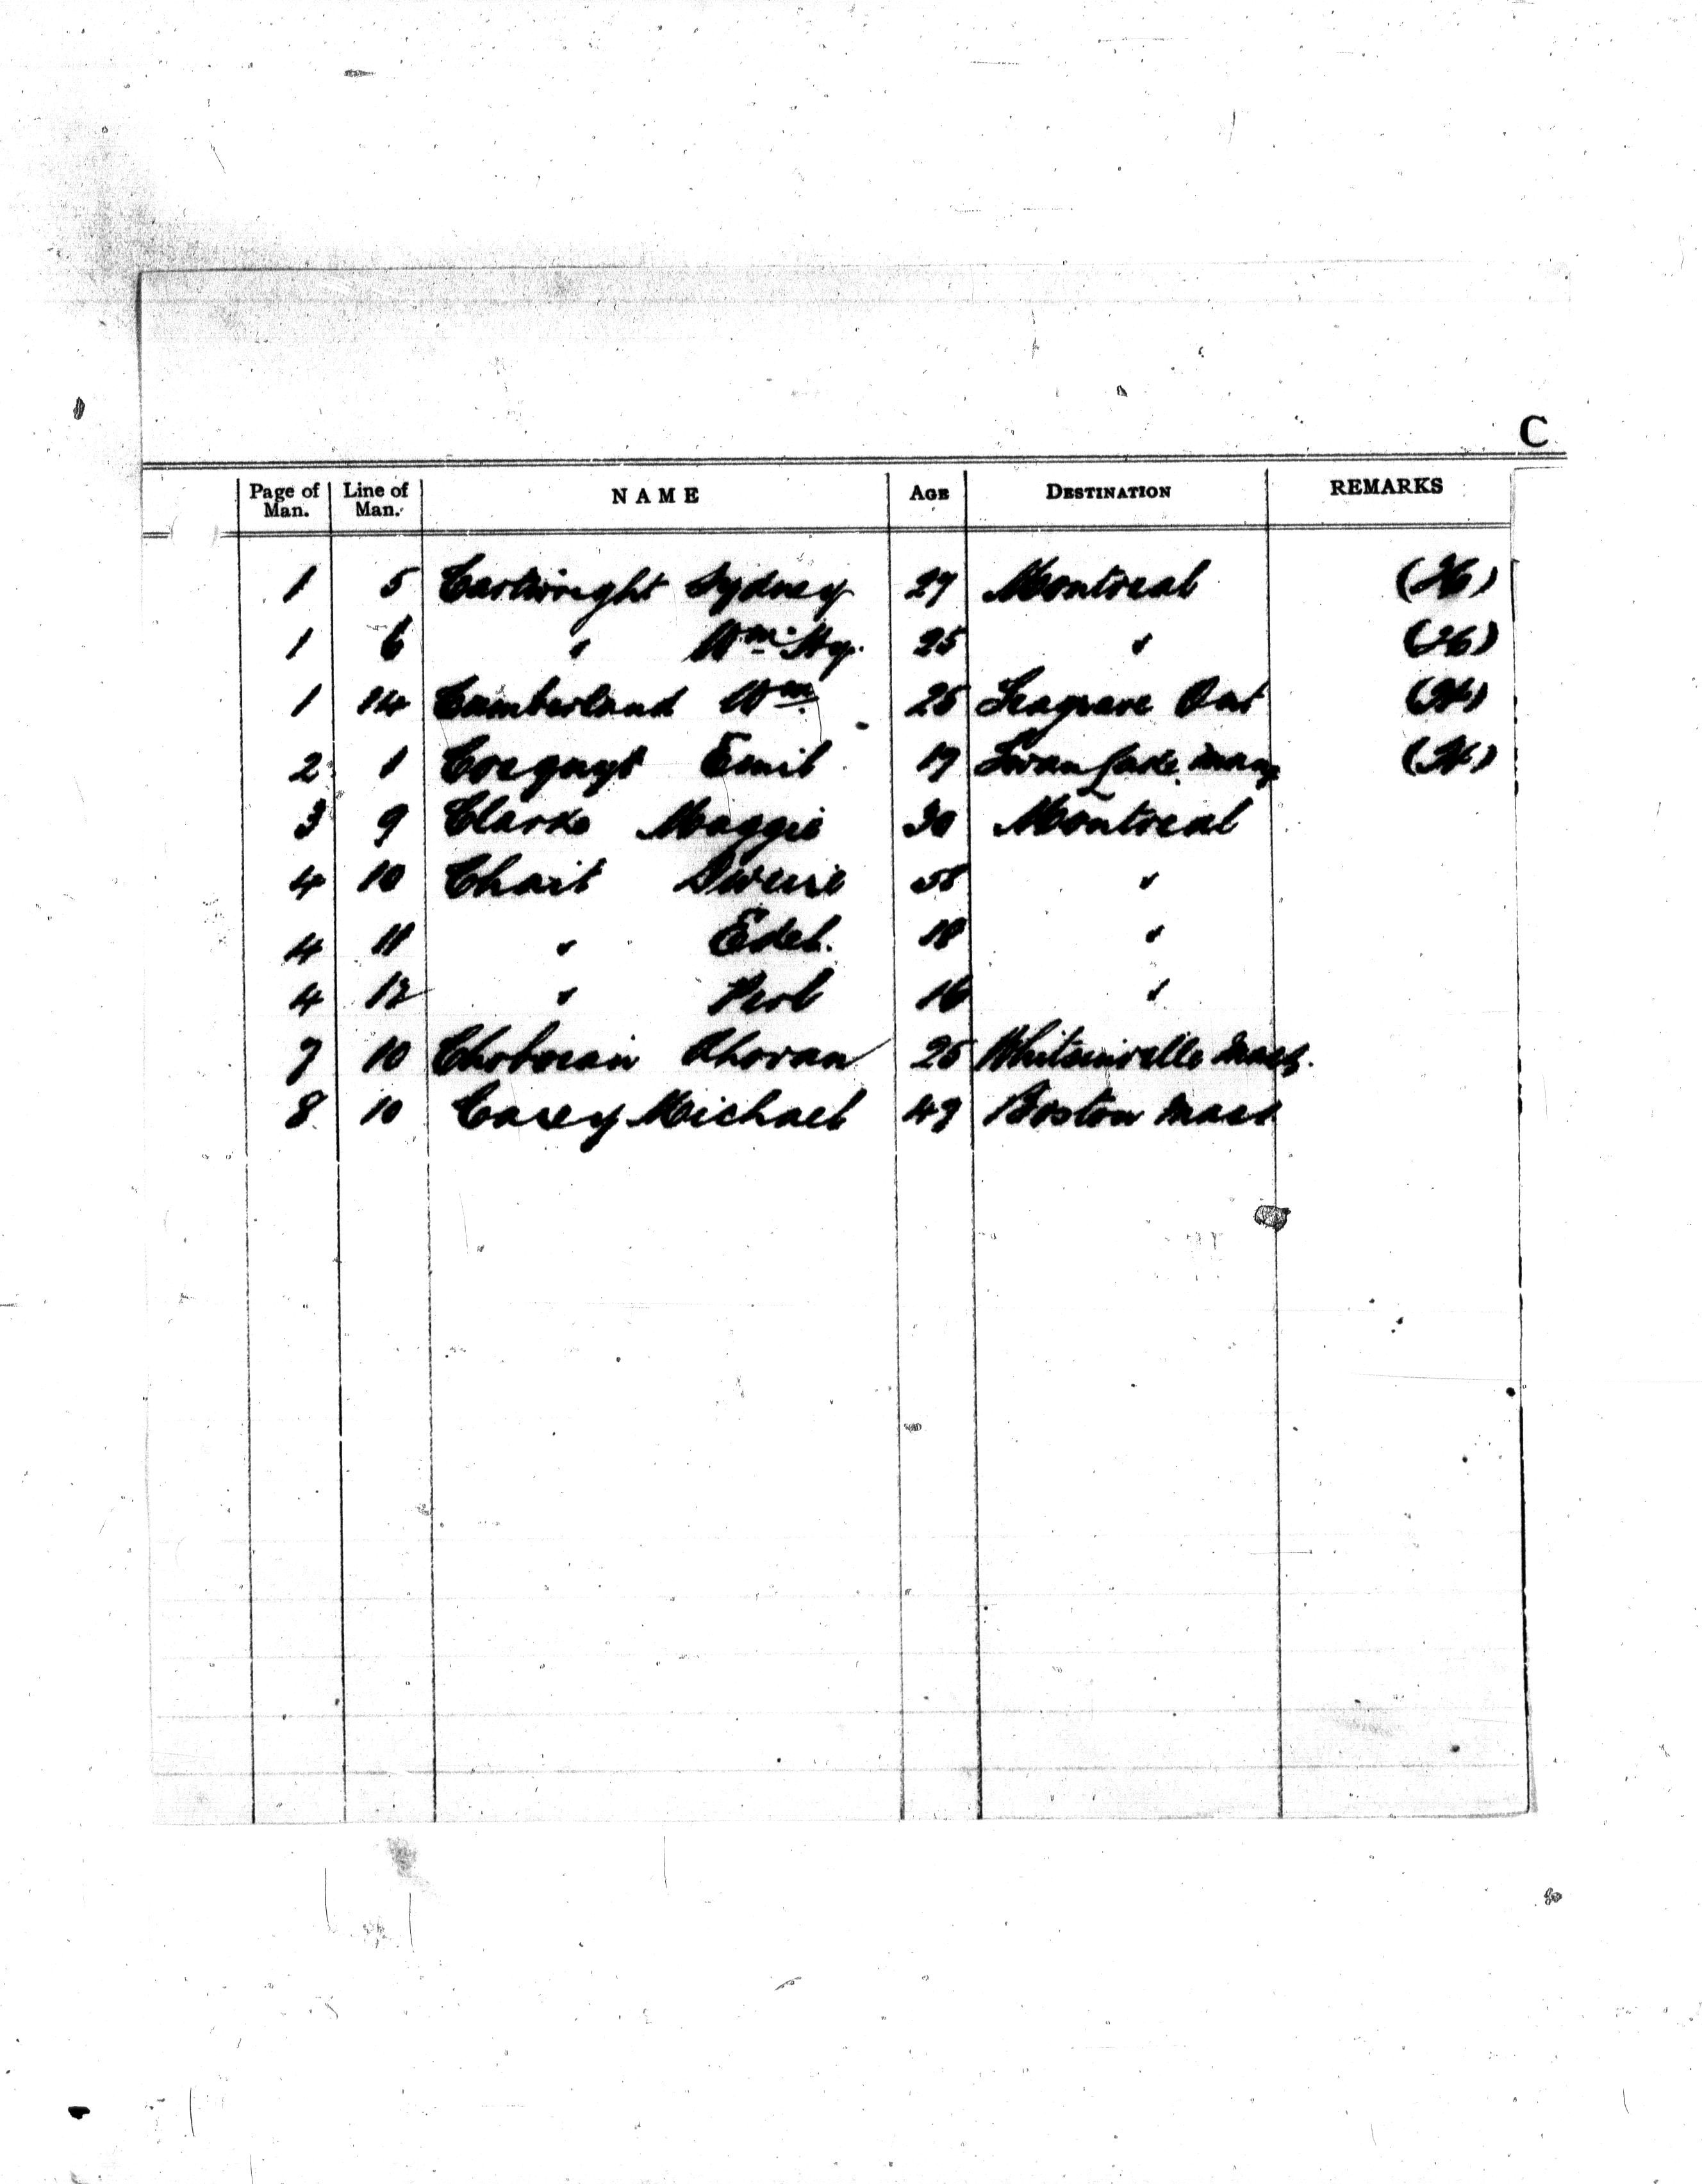 C
Page of Man. Line of Man. NAME AGE DESTINATION REMARKS
1 5 Cartwright Sydney 27 Montreal (H)
1 6 " Wm. Hy. 25 " (H)
1 14 Cumberland Wm 25 Seagrave Ont (H)
2 1 Emil 19 Swan Lake (H)
3 9 Clarke Maggie 30 Montreal
4 10 Chait "
4 11 " Edel. 18 "
4 12 " Perl 16 "
7 10 25 Whitinsville Mass.
8 10 Casey Michael 49 Boston Mass